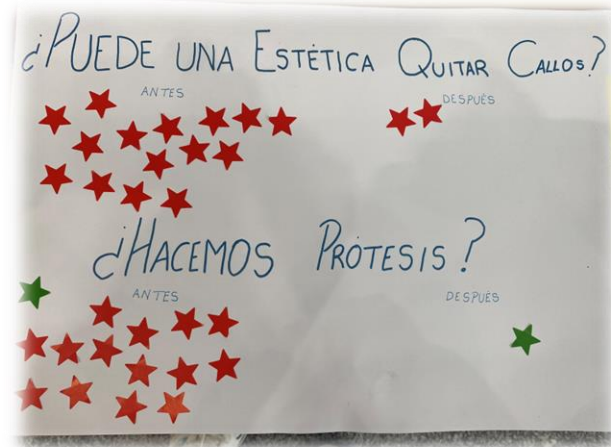 ¿PUEDE UNA ESTÉTICA QUITAR CALLOS?
ANTES DESPUÉS
¿HACEMOS PRÓTESIS?
ANTES DESPUÉS